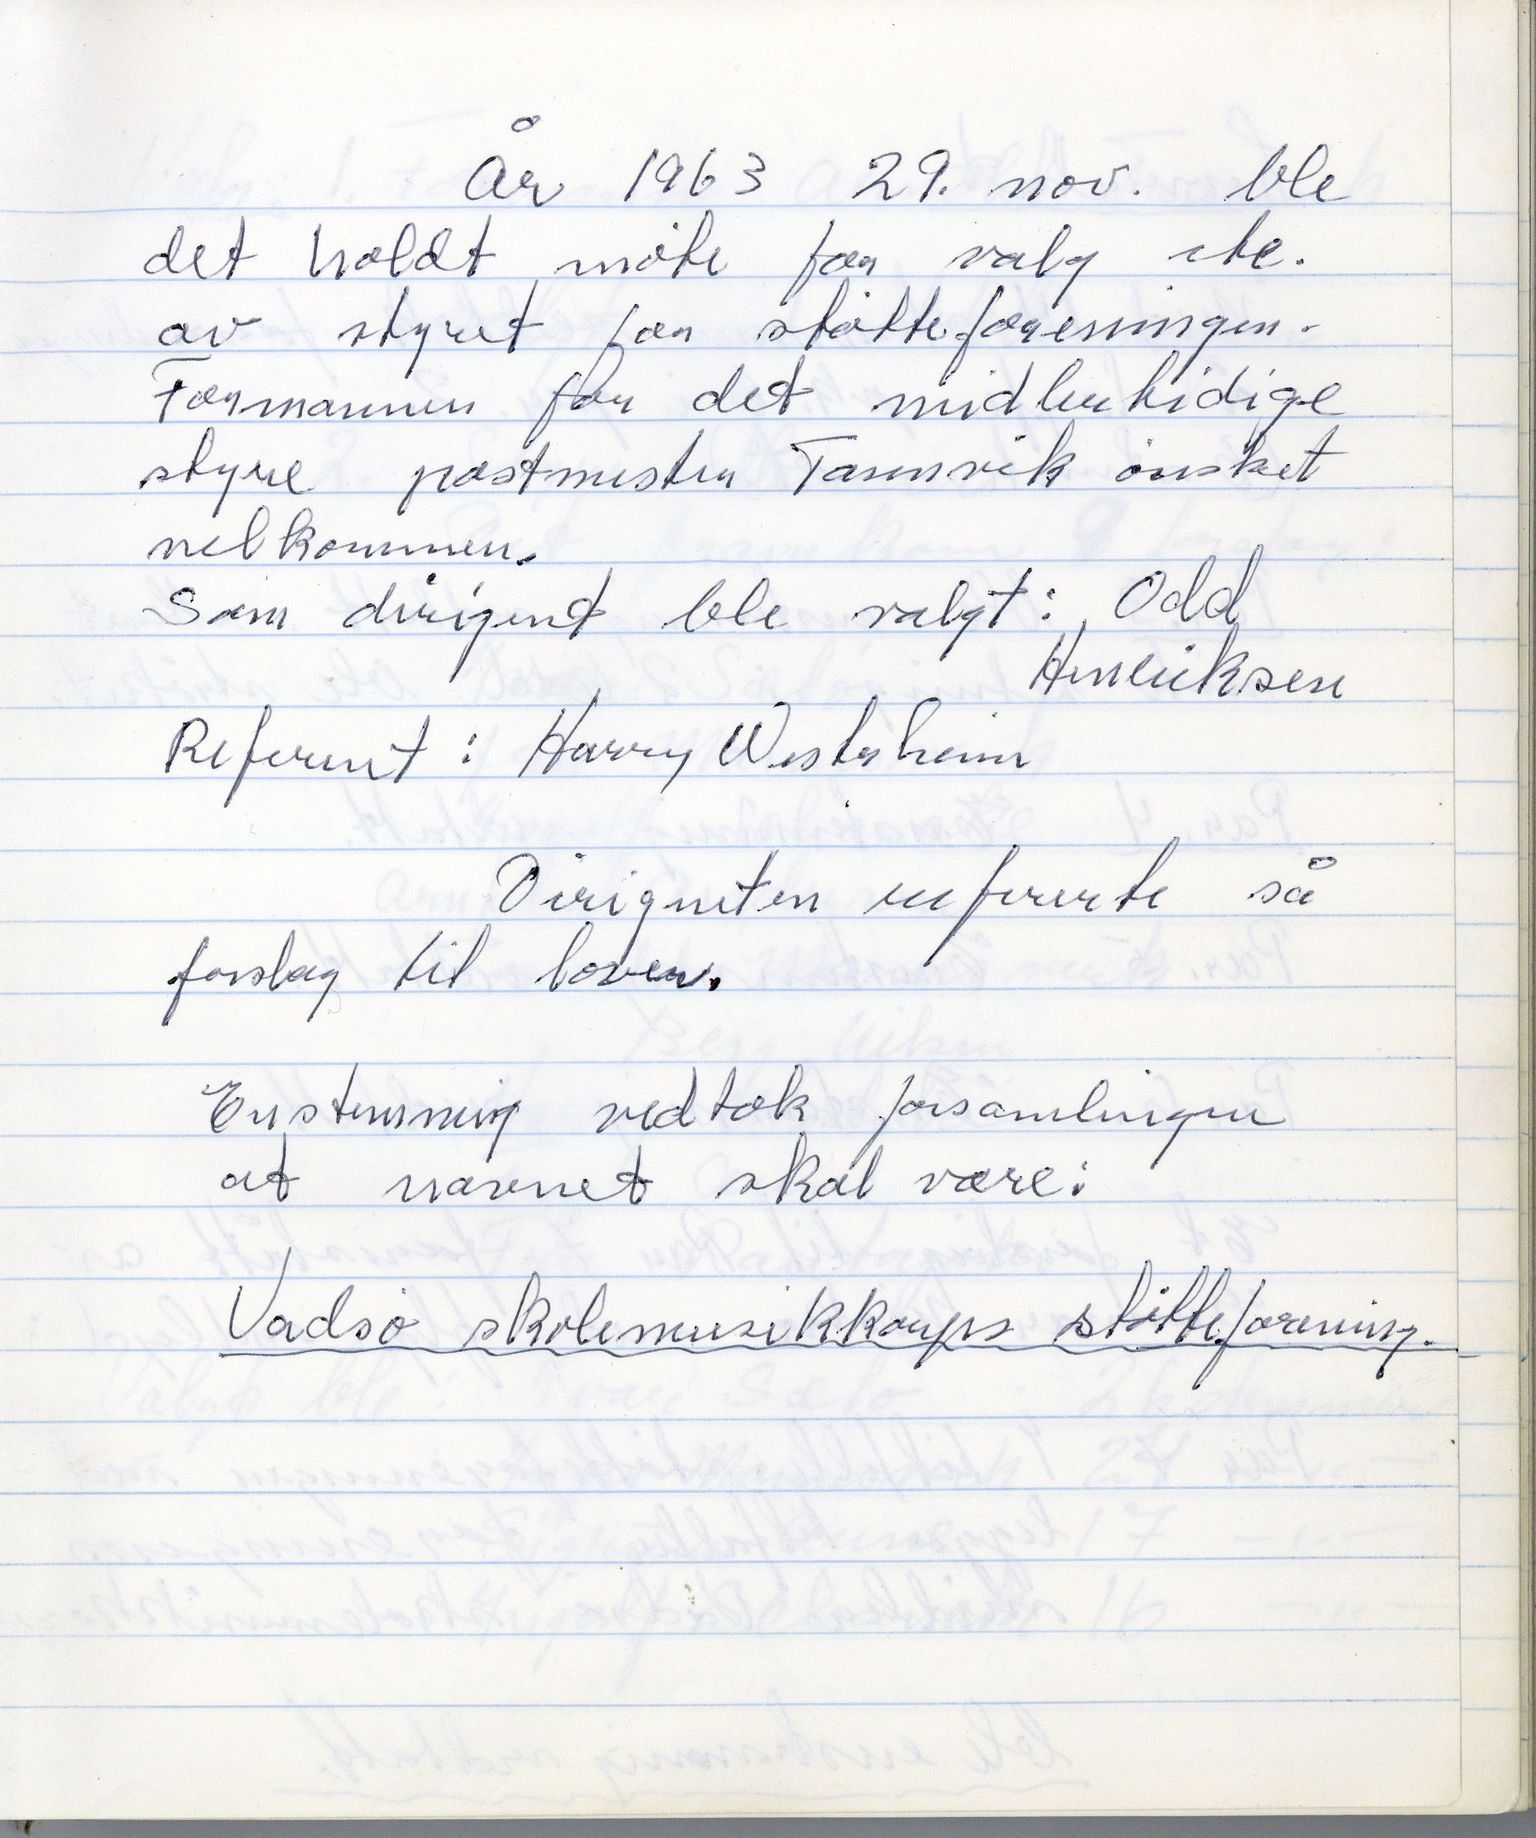 År 1963 29. nov. ble
det holdt møte for valg etc.
av styret for støtteforeningen.
Formannen for det midlertidige
styre postmester Tannvik ønsket
velkommen.
Som dirigent ble valgt: Odd
Henriksen
Referent: Harry Westerheim
Dirigneten refererte så
forslag til lover.
Enstemmig vedtok forsamlingen
at navnet skal være:
Vadsø skolemusikkorps støtteforening.